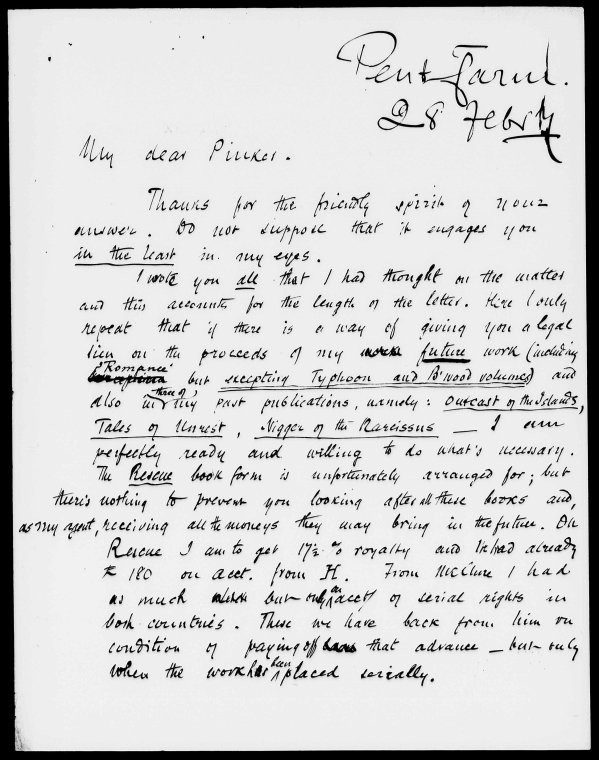 Pent Farm.
28 Febr
My dear Pinker.
Thanks for the friendly spirit of your
answer. Do not suppose that it engages you
in the least in my eyes.
I wrote you all that I had thought on the matter
and this accounts for the length of the letter. Here I only
repeat that if there is a way of giving you a legal
lien on the proceeds of my future work (including
'Romance'
but excepting Typhoon and B'wood volumes) and
also in three of my past publications, namely: Outcast of the Islands,
Tales of Unrest, Nigger of the Narcissus — I am
perfectly ready and willing to do what's necessary.
The Rescue book form is unfortunately arranged for; but
there's nothing to prevent you looking after all these books and,
as my agent, receiving all the moneys they may bring in the future. On
Rescue I am to get 17½ % royalty and I've had already
£ 180 on acct. from H. From McClure I had
as much but only on acct of serial rights in
both countries. These we have back from him on
condition of paying off that advance — but only
when the work has been placed serially.